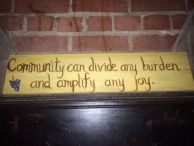 Community can divide any burden
and amplify any joy.